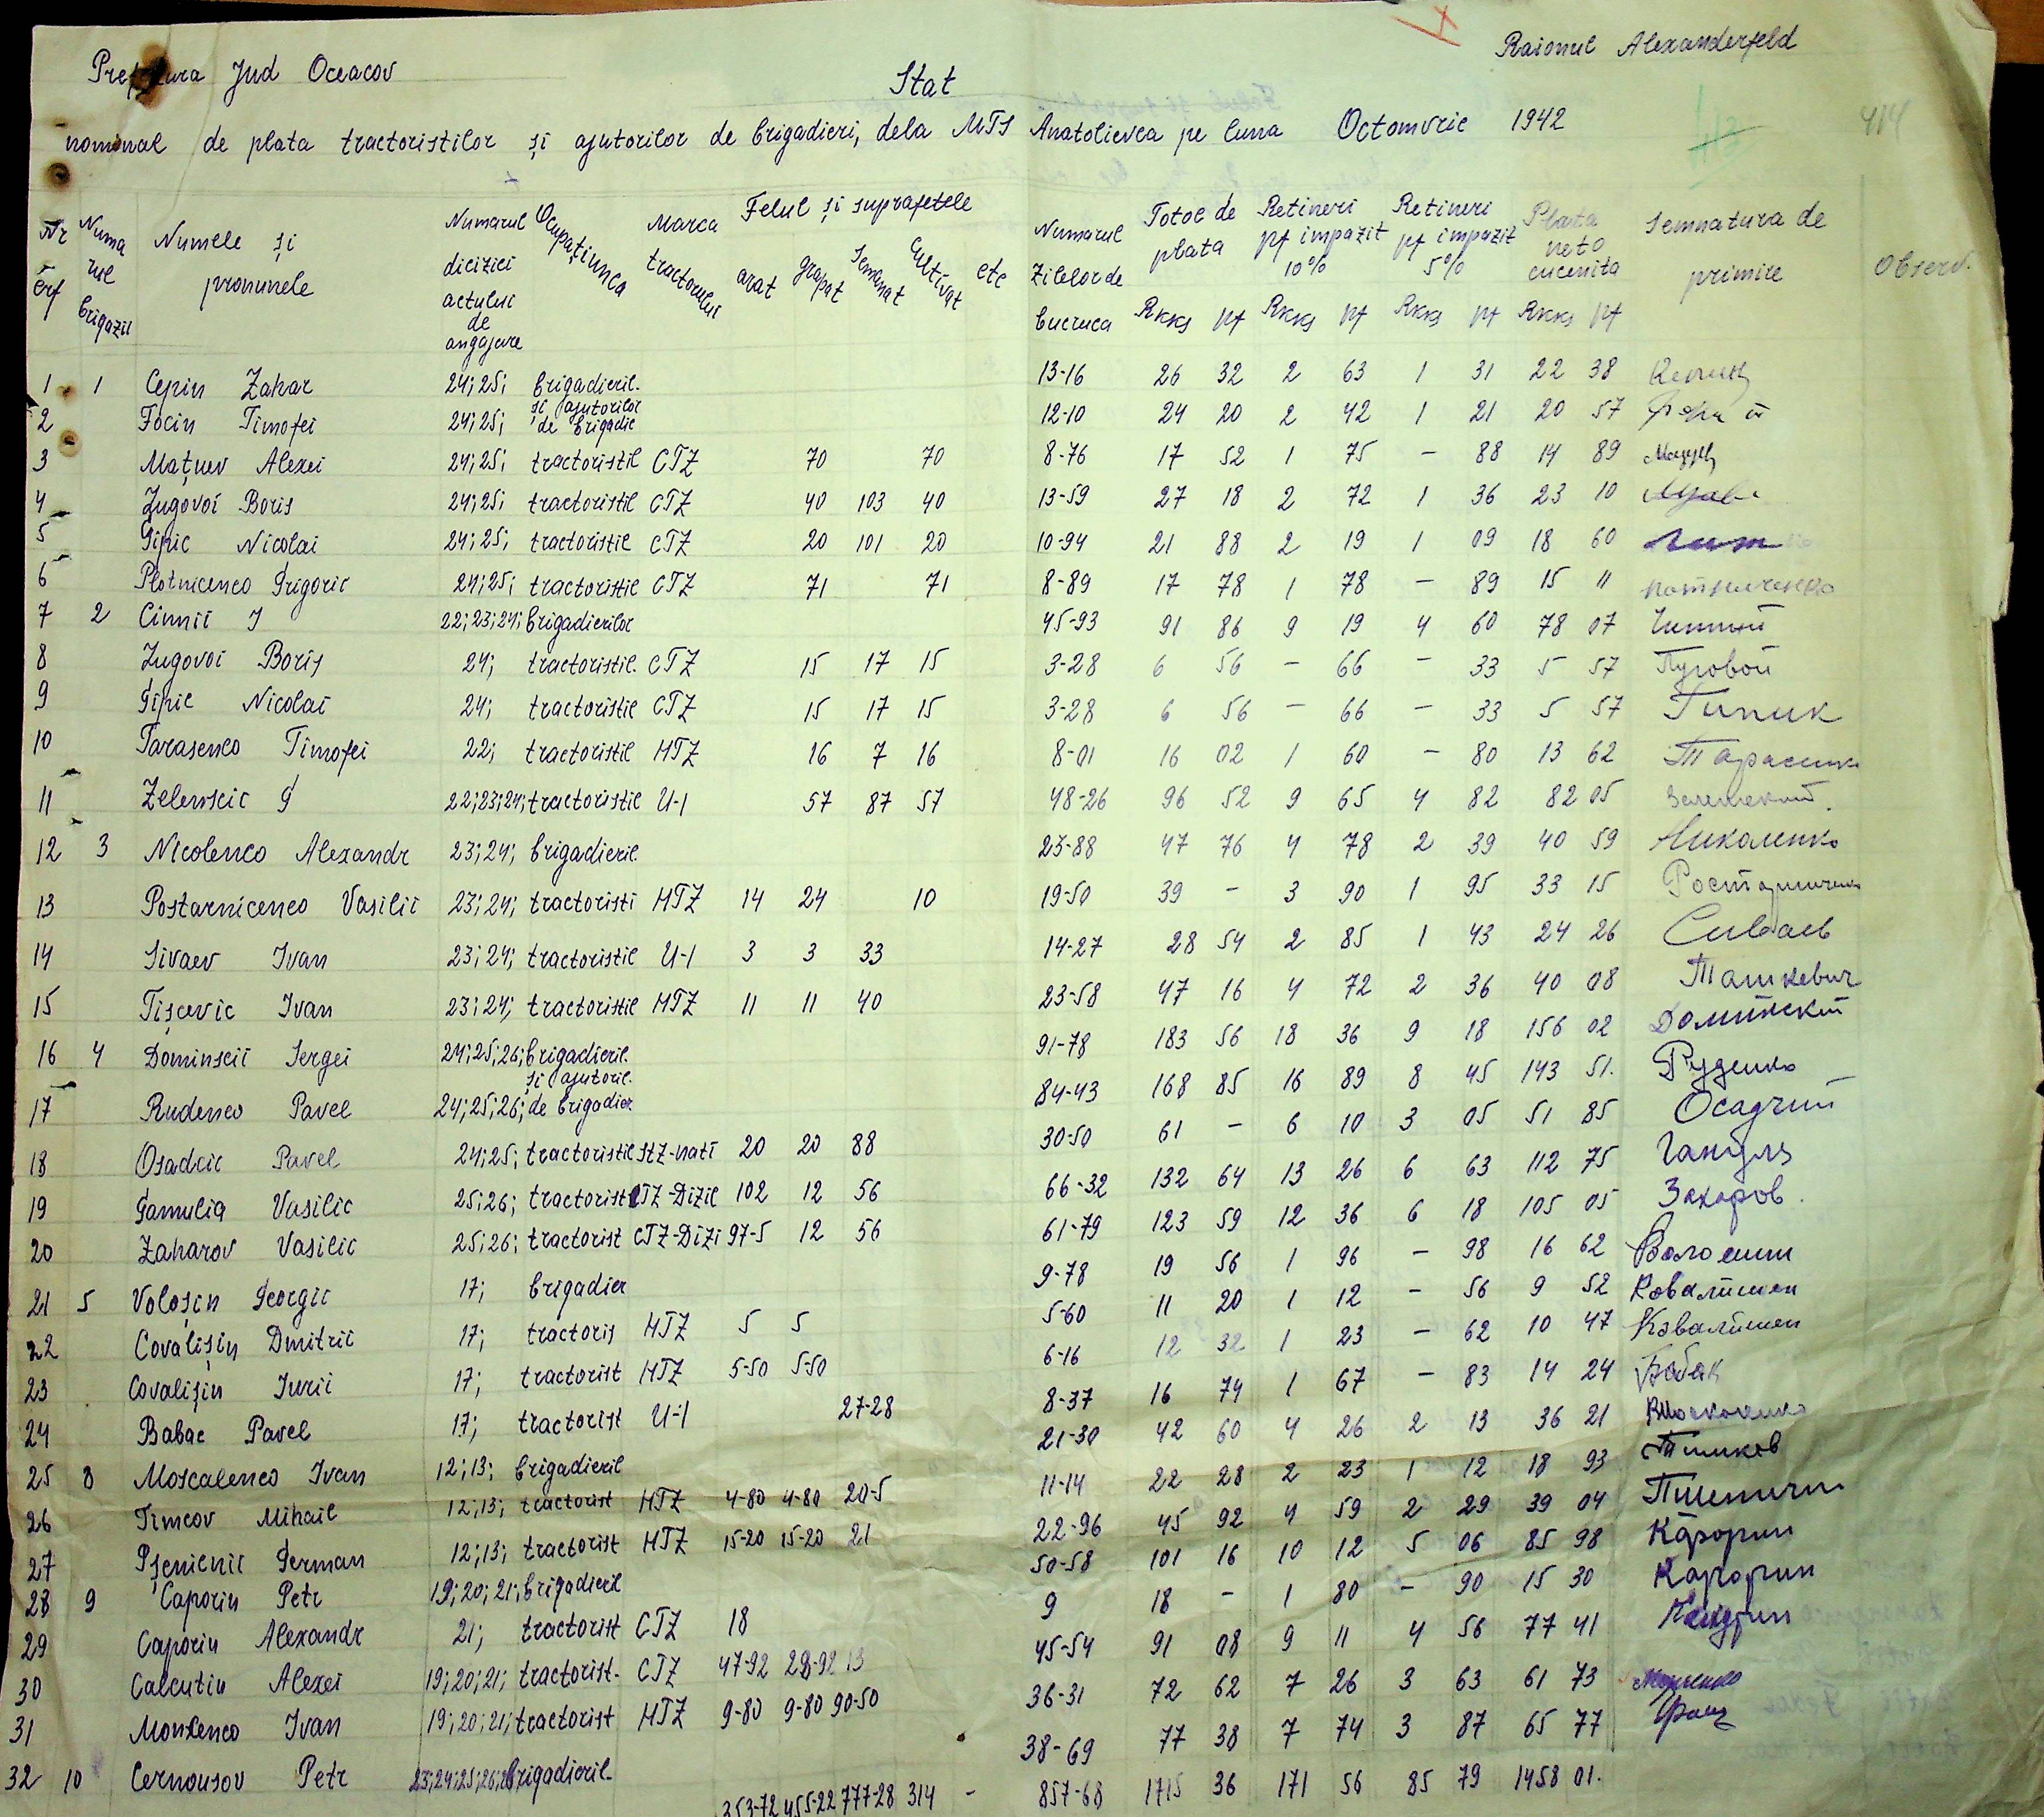 Prefectura Jud Oceacov
Raionul Alexanderfeld
Stat
nominal de plata tractoristilor și ajutorilor de brigadieri, dela MTS Anatolievca pe luna Octomvrie 1942
414
Nr crt
Numa rul brigazii
Numele și pronumele
Numarul diciziei actului de angajare
Ocupațiunea
Marca tractorului
Felul și suprafetele
arat grapat Semanat Cultivat etc
Numarul Zilelor de lucruca
Totol de plata
Retineri pf impazit 10%
Retineri pf impazit 5%
Plata neto cucenita
Semnatura de primire
Observ.
Rkks pf Rkks pf Rkks pf Rkks pf
1 1 Cepin Zahar 24; 25; brigadieril. 13-16 26 32 2 63 1 31 22 38
și ajutorilor
2 Focin Timofei 24; 25; de brigadie 12-10 24 20 2 42 1 21 20 57
3 Mațuev Alexei 24; 25; tractoristil CTZ 70 70 8-76 17 52 1 75 - 88 14 89
4 Lugovoi Boris 24; 25; tractoristil CTZ 40 103 40 13-59 27 18 2 72 1 36 23 10
5 Gipic Nicolai 24; 25; tractoristil CTZ 20 101 20 10-94 21 88 2 19 1 09 18 60
6 Plotnicenco Grigoric 24; 25; tractoristil CTZ 71 71 8-89 17 78 1 78 - 89 15 11
7 2 Cinnii I 22; 23; 24; brigadierilor 45-93 91 86 9 19 4 60 78 07
8 Lugovoi Boris 24; tractoristil. CTZ 15 17 15 3-28 6 56 - 66 - 33 5 57 Луговой
9 Gipic Nicolai 24; tractoristil CTZ 15 17 15 3-28 6 56 - 66 - 33 5 57 Гипик
10 Tarasenco Timofei 22; tractoristil HTZ 16 7 16 8-01 16 02 1 60 - 80 13 62
11 Zelenscic G 22; 23; 24; tractoristil U-1 57 87 57 48-26 96 52 9 65 4 82 82 05
12 3 Nicolenco Alexandr 23; 24; brigadieril. 23-88 47 76 4 78 2 39 40 59 Николенко
13 Postarnicenco Vasilii 23; 24; tractoristi HTZ 14 24 10 19-50 39 - 3 90 1 95 33 15
14 Sivaev Ivan 23; 24; tractoristil U-1 3 3 33 14-27 28 54 2 85 1 43 24 26 Сиваев
15 Tișcevic Ivan 23; 24; tractoristil HTZ 11 11 40 23-58 47 16 4 72 2 36 40 08 Ташкевич
16 4 Dominscii Sergei 24; 25; 26; brigadieril. 91-78 183 56 18 36 9 18 156 02 Доминский
și ajutoril.
17 Rudenco Pavel 24; 25; 26; de brigadier. 84-43 168 85 16 89 8 45 143 51. Руденко
18 Osadcic Pavel 24; 25; tractoristil STZ-nati 20 20 88 30-50 61 - 6 10 3 05 51 85 Осадчий
19 Gamulia Vasilic 25; 26; tractorist CTZ-Dizil 102 12 56 66-32 132 64 13 26 6 63 112 75
20 Zaharov Vasilic 25; 26; tractorist CTZ-Dizi 97-5 12 56 61-79 123 59 12 36 6 18 105 05 Захаров.
21 5 Voloșin Georgii 17; brigadier 9-78 19 56 1 96 - 98 16 62 Волошин
22 Covalișin Dmitric 17; tractoris HTZ 5 5 5-60 11 20 1 12 - 56 9 52 Ковалишен
23 Covalișin Iurii 17; tractorist HTZ 5-50 5-50 6-16 12 32 1 23 - 62 10 47 Ковалишен
24 Babac Pavel 17; tractorist U-1 27-28 8-37 16 74 1 67 - 83 14 24 Бабак
25 8 Moscalenco Ivan 12; 13; brigadieril 21-30 42 60 4 26 2 13 36 21
26 Timcov Mihail 12; 13; tractorist HTZ 4-80 4-80 20-5 11-14 22 28 2 23 1 12 18 93 Тимков
27 Pșenicnii German 12; 13; tractorist HTZ 15-20 15-20 21 22-96 45 92 4 59 2 29 39 04
28 9 Caporin Petr 19; 20; 21; brigadieril 50-58 101 16 10 12 5 06 85 98 Капорин
29 Caporin Alexandr 21; tractorist CTZ 18 9 18 - 1 80 - 90 15 30 Капорин
30 Calcutin Alexei 19; 20; 21; tractorist- CTZ 47-92 28-92 13 45-54 91 08 9 11 4 56 77 41
31 Monsenco Ivan 19; 20; 21; tractorist HTZ 9-80 9-80 90-50 36-31 72 62 7 26 3 63 61 73
32 10 Cernousov Petr 23; 24; 25; 26; brigadieril. 38-69 77 38 7 74 3 87 65 77
353-72 455-22 777-28 314 - 857-68 1715 36 171 56 85 79 1458 01.